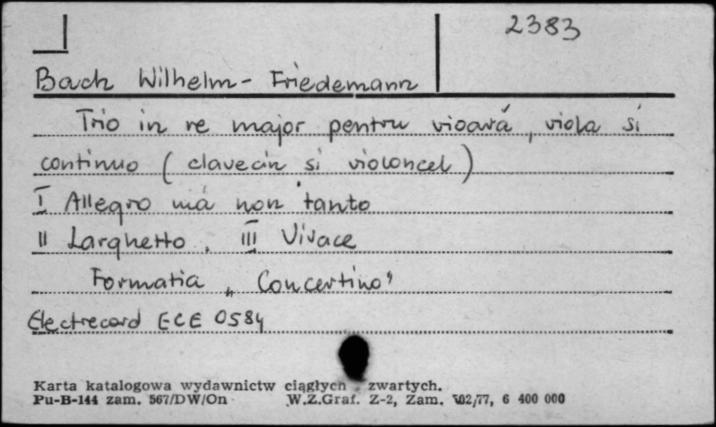 2383
Bach Wilhelm-Friedemann
Trio in re major pentru vioară, viola si
continuo (clavecin si violoncel)
I Allegro mà non tanto
II Larghetto. III Vivace
Formatia „Concertino"
Electrecord ECE 0584
Karta katalogowa wydawnictw ciągłych zwartych.
Pu-B-144 zam. 567/DW/On W.Z.Graf. Z-2, Zam. 702/77, 6 400 000